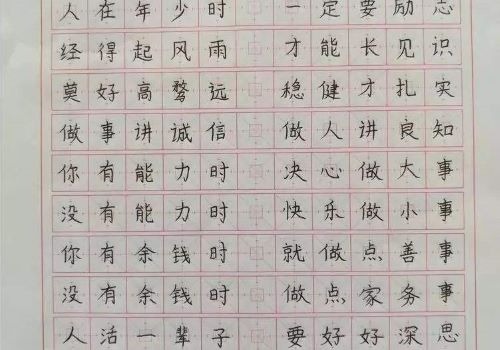 人在年少时 一定要励志
经得起风雨 才能长见识
莫好高骛远 稳健才扎实
做事讲诚信 做人讲良知
你有能力时 决心做大事
没有能力时 快乐做小事
你有余钱时 就做点善事
没有余钱时 做点家务事
人活一辈子 要好好深思